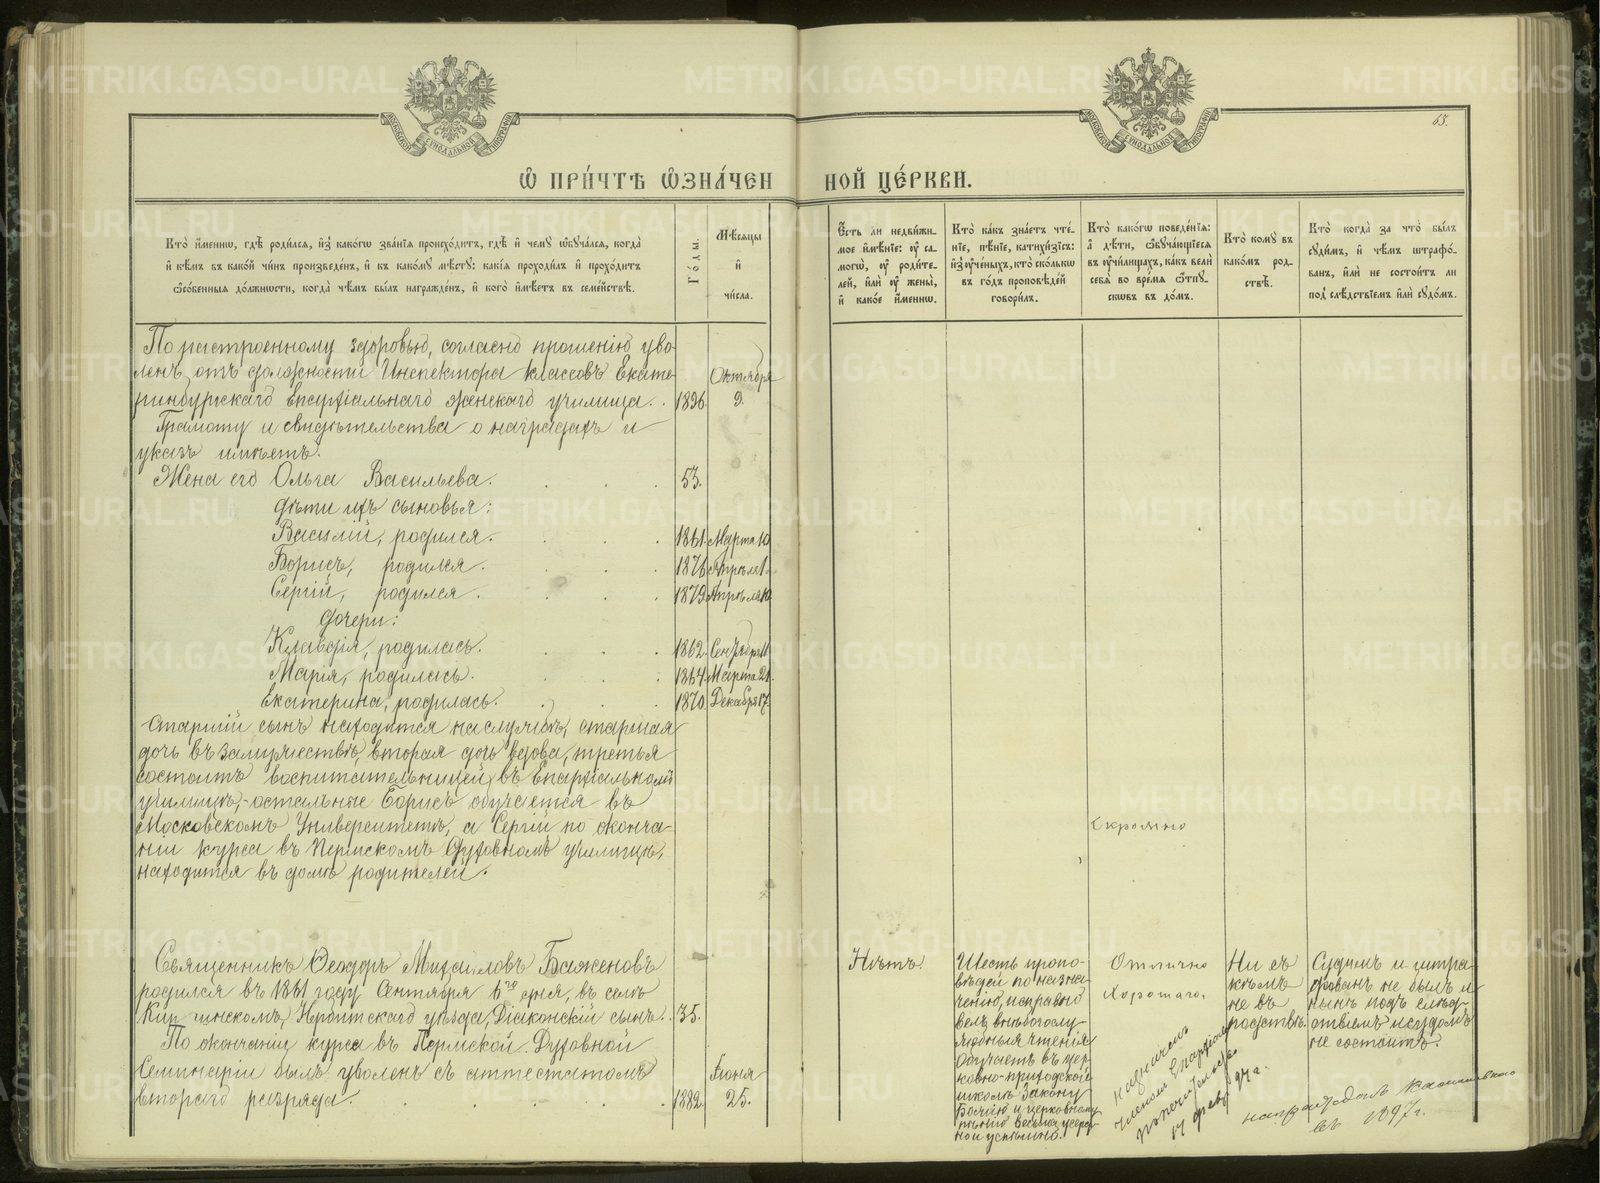 65.
Ѡ ПРИ́ЧТѢ ѠЗНА́ЧЕННОЙ ЦЕ́РКВИ.
Кто̀ и҆́менно, гдѣ̀ роди́лся, и҆з̾ како́гѡ зва́нїѧ происхо́дитъ, гдѣ̀ и҆ чему̀ ѡ҆буча́лся, когда̀
и҆ кѣ́мъ въ како́й чи́нъ произведе́нъ, и҆ къ како́му мѣ́сту: какі̑ѧ проходи́лъ и҆ прохо́дитъ
ѡ҆со́бенныѧ до́лжности, когда̀ чѣ́мъ бы́лъ награжде́нъ, и҆ кого̀ и҆мѣ́етъ въ семе́йствѣ.
Го́ды.
Мѣ́сяцы
и҆
чи́сла.
Є҆́сть ли недви́жи-
мое и҆мѣ́нїе: ᲂу҆ са-
могѡ̀, ᲂу҆ роди́те-
лей, и҆лѝ ᲂу҆ жены̀,
и҆ како́е и҆́менно.
Кто̀ ка́къ зна́етъ чте́-
нїе, пѣ́нїе, катихи́зисъ:
и҆з̾ ᲂу҆че́ныхъ, кто̀ ско́лькѡ
въ го́дъ про́повѣдей
говори́лъ.
Кто̀ како́гѡ поведе́нїѧ:
а҆ дѣ́ти, ѡ҆буча́ющїесѧ
въ ᲂу҆чи́лищахъ, ка́къ велѝ
себѧ̀ во вре́мѧ ѿпу-
скѡвъ въ до́мъ.
Кто̀ кому̀ въ
како́мъ род-
ствѣ̀.
Кто̀ когда̀ за что̀ бы́лъ
суди́мъ, и҆ чѣ́мъ штрафо́-
ванъ, и҆лѝ не состои́тъ ли
под̾ слѣ́дствїемъ и҆лѝ судо́мъ.
По растроенному здоровью, согласно прошенію уво-
ленъ отъ должности Инспектора классовъ Екате-
ринбургскаго Епархіальнаго женскаго училища. 1896. Октября 9.
Грамоту и свидѣтельства о наградахъ и
указъ имѣетъ.
Жена его Ольга Васильева. 53.
дѣти ихъ сыновья:
Василій, родился. 1861. Марта 10
Борисъ, родился. 1876 Апрѣля 1.
Сергій, родился. 1879 Апрѣля 10.
дочери:
Клавдія, родилась. 1862. Сентября 11
Марія, родилась. 1864. Марта 21.
Екатерина, родилась. 1870. Декабря 17.
Старшій сынъ находится на службѣ, старшая
дочь въ замужествѣ, вторая дочь вдова, третья
состоитъ воспитательницей въ Епархіальномъ
училищѣ,-остальные Борисъ обучается въ
Московскомъ Университетѣ, а Сергій по оконча-
ніи курса въ Пермскомъ Духовномъ училищѣ,
находится въ домѣ родителей.
Скромно
Священникъ Ѳеодоръ Михаиловъ Баженовъ
родился въ 1861 году Сентября 6го дня, въ селѣ
Киргинскомъ, Ирбитскаго уѣзда, Діаконскій сынъ. 35.
По окончаніи курса въ Пермской Духовной
Семинаріи былъ уволенъ съ аттестатомъ
втораго разряда. 1882. Іюня 25.
Нѣтъ.
Шесть пропо-
вѣдей по назна-
ченію, исправно
велъ внѣбогослу-
жебныя чтенія
Обучаетъ въ цер-
ковно-приходской
школѣ Закону
Божію и церковному
пѣнію весьма усерд-
но и успѣшно.
Отлично
хорошаго.
Ни съ
кѣмъ
не въ
родствѣ.
Судимъ и штра-
фованъ не былъ и
нынѣ подъ слѣд-
ствіемъ и судомъ
не состоитъ.
назначенъ
членомъ Епархіал
Попечительства
17 февр 97 г.
награжденъ
въ 1897 г.